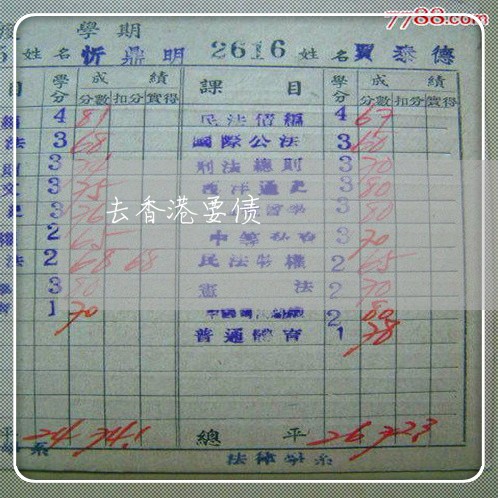 7788.com
學期
姓名 忻鼎明 2616 姓名 賈泰德
目 學分 成績 課目 學分 成績
分數 扣分 實得 分數 扣分 實得
4 81 民法債編 4 67
法 3 68 國際公法 3 60
3 刑法總則 3 70
3 75 西洋通史 3 80
3 3 80
去香港要债
2 65 3 70
法 2 68 68 民法物權 2 65
3 80 憲法 2 70
1 70 2 80
普通體育 1 78
平 24 74.1 總平 26 72.3
系 法律學系